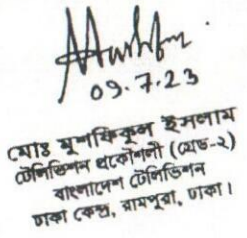 09.7.23
মোঃ মুশফিকুল ইসলাম
টেলিভিশন প্রকৌশলী (গ্রেড-২)
বাংলাদেশ টেলিভিশন
ঢাকা কেন্দ্র, রামপুরা, ঢাকা।